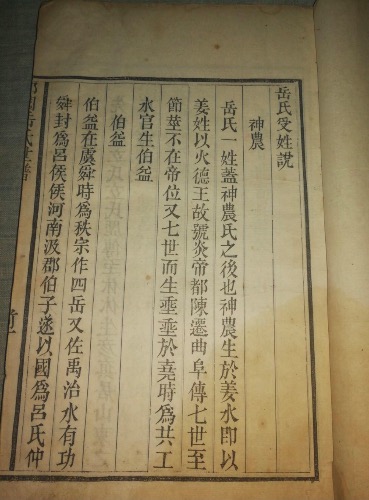 岳氏受姓說
神農
岳氏一姓蓋神農氏之後也神農生於姜水即以
姜姓以火德王故號炎帝都陳遷曲阜傳七世至
節莖不在帝位又七世而生垂垂於堯時爲共工
水官生伯益
伯益
伯益在虞舜時爲秩宗作四岳又佐禹治水有功
舜封爲呂侯侯河南汲郡伯子遂以國爲呂氏仲